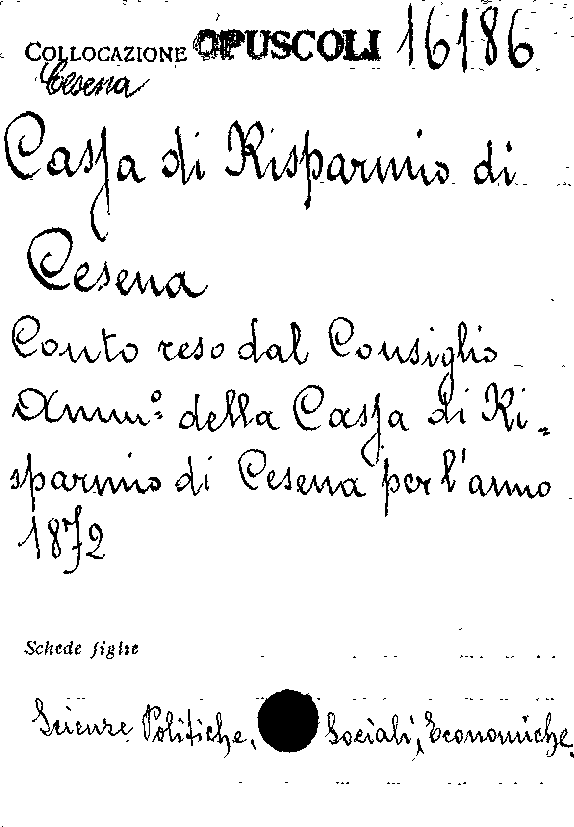 COLLOCAZIONE OPUSCOLI 16186
Cesena
Cassa di Risparmio di
Cesena
Conto reso dal Consiglio
Amm.° della Cassa di Ri=
sparmio di Cesena per l'anno
1872
Schede figlie
Scienze Politiche, Sociali, Economiche.